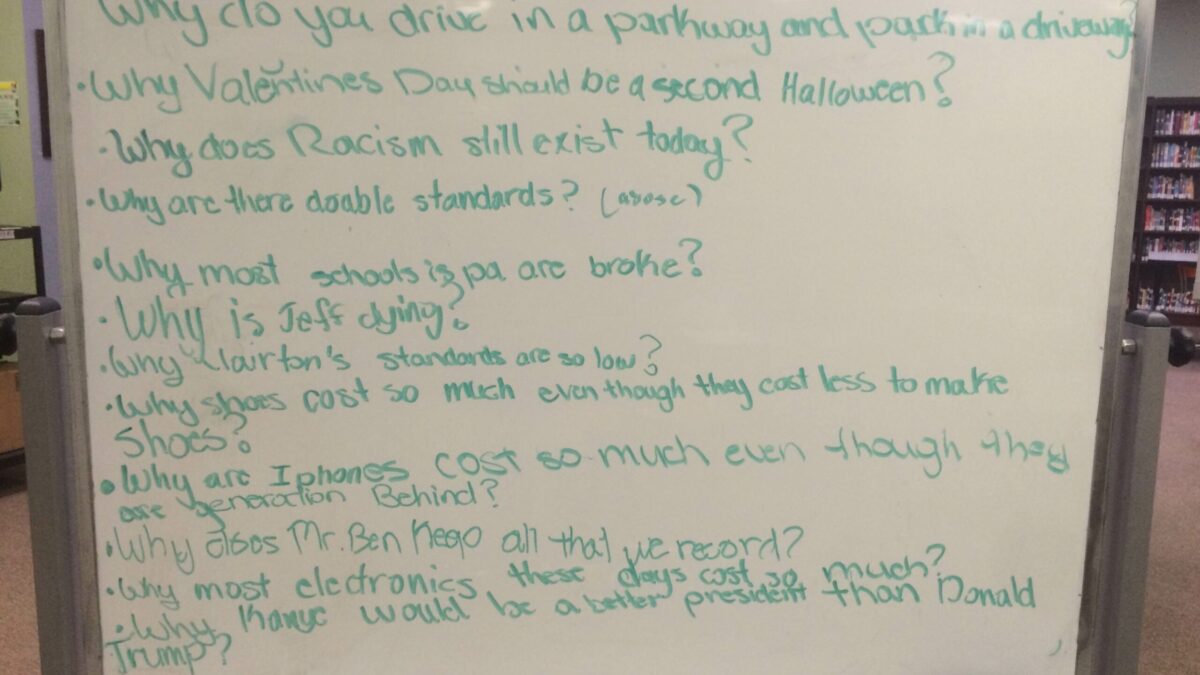 Why do you drive in a parkway and park in a driveway?
• Why Valentines Day should be a second Halloween?
• Why does Racism still exist today?
• Why are there doable standards?
• Why most schools is pa are broke?
• Why is Jeff dying?
• Why Clairton's standards are so low?
• Why shoes cost so much even though they cost less to make
shoes?
• Why are Iphones cost so much even though they
are generation Behind?
• Why does Mr. Ben Keep all that we record?
• Why most electronics these days cost so much?
• Why Kanye would be a better president than Donald
Trump?